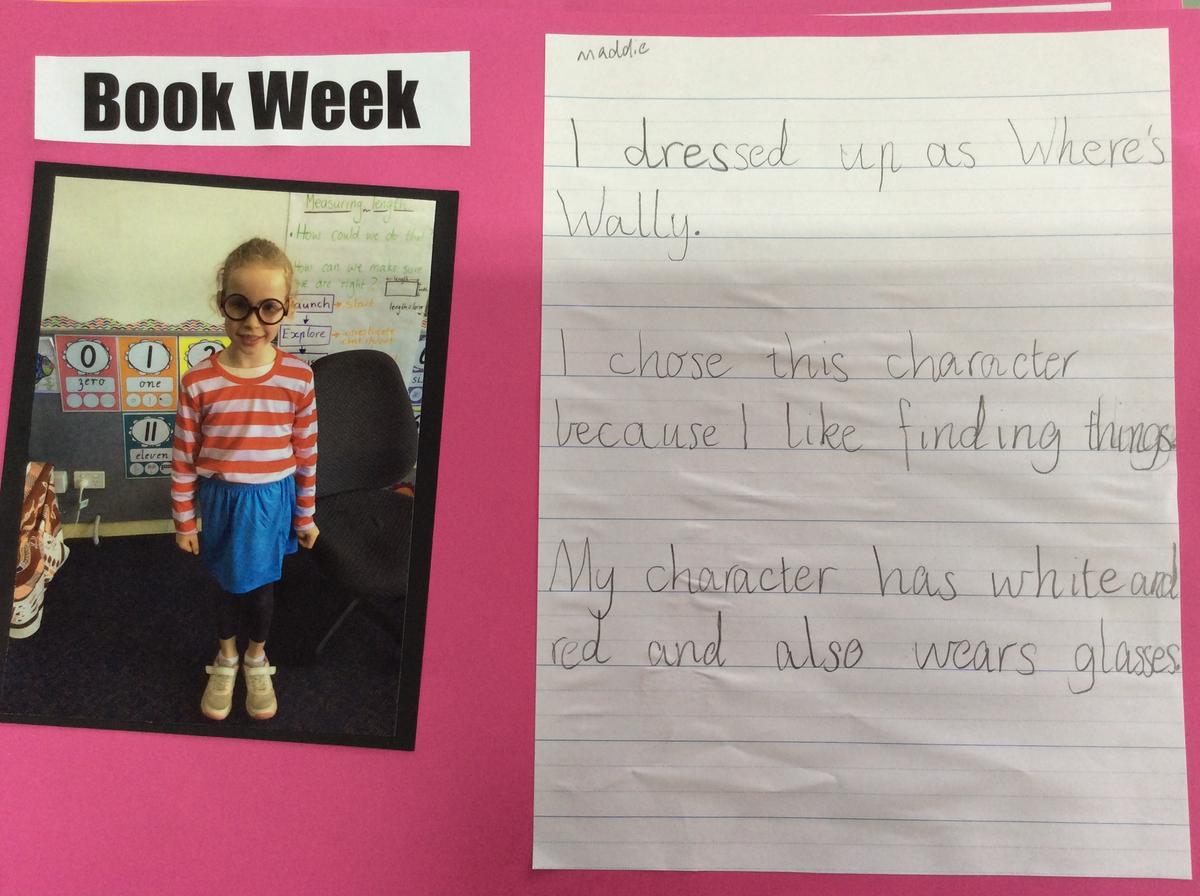 Book Week
Measuring length
• How could we do tha
How can we make sure
we are right?
length
Launch → start
Explore → investigate
0
zero
1
one
2
11
eleven
maddie
I dressed up as Where's
Wally.
I chose this character
because I like finding things.
My character has white and
red and also wears glasses.